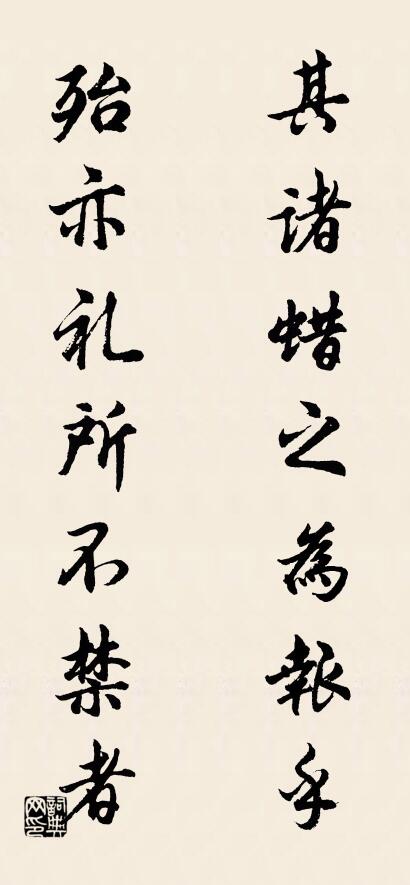 其诸蜡之為報乎
殆亦礼所不禁者